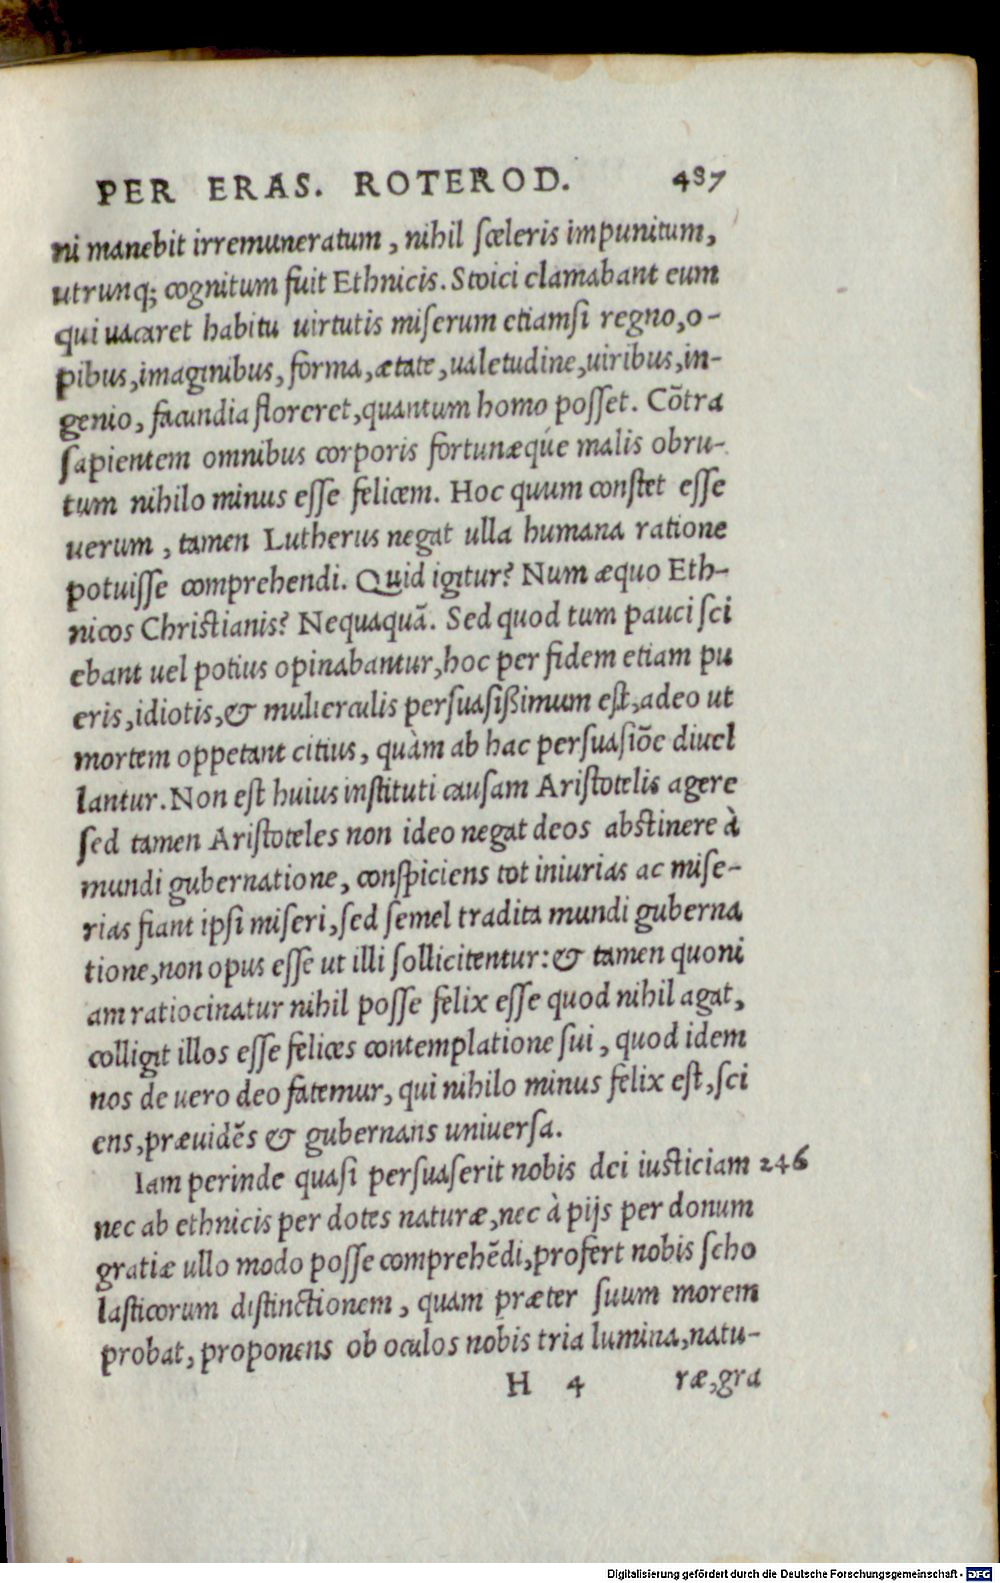 PER ERAS. ROTEROD. 487
ni manebit irremuneratum, nihil sceleris impunitum,
utrunq; cognitum fuit Ethnicis. Stoici clamabant eum
qui uacaret habitu uirtutis miserum etiamsi regno, o-
pibus, imaginibus, forma, ætate, ualetudine, uiribus, in-
genio, facundia floreret, quantum homo posset. Cõtra
sapientem omnibus corporis fortunæqúe malis obru-
tum nihilo minus esse felicem. Hoc quum constet esse
uerum, tamen Lutherus negat ulla humana ratione
potuisse comprehendi. Quid igitur? Num æquo Eth-
nicos Christianis? Nequaquã. Sed quod tum pauci sci
ebant uel potius opinabantur, hoc per fidem etiam pu
eris, idiotis, & mulierculis persuasißimum est, adeo ut
mortem oppetant citius, quàm ab hac persuasiõe diuel
lantur. Non est huius instituti causam Aristotelis agere
sed tamen Aristoteles non ideo negat deos abstinere à
mundi gubernatione, conspiciens tot iniurias ac mise-
rias fiant ipsi miseri, sed semel tradita mundi guberna
tione, non opus esse ut illi sollicitentur: & tamen quoni
am ratiocinatur nihil posse felix esse quod nihil agat,
colligit illos esse felices contemplatione sui, quod idem
nos de uero deo fatemur, qui nihilo minus felix est, sci
ens, præuidẽs & gubernans uniuersa.
Iam perinde quasi persuaserit nobis dei iusticiam 246
nec ab ethnicis per dotes naturæ, nec à pijs per donum
gratiæ ullo modo posse comprehẽdi, profert nobis scho
lasticorum distinctionem, quam præter suum morem
probat, proponens ob oculos nobis tria lumina, natu-
H 4 ræ, gra
Digitalisierung gefördert durch die Deutsche Forschungsgemeinschaft - DFG